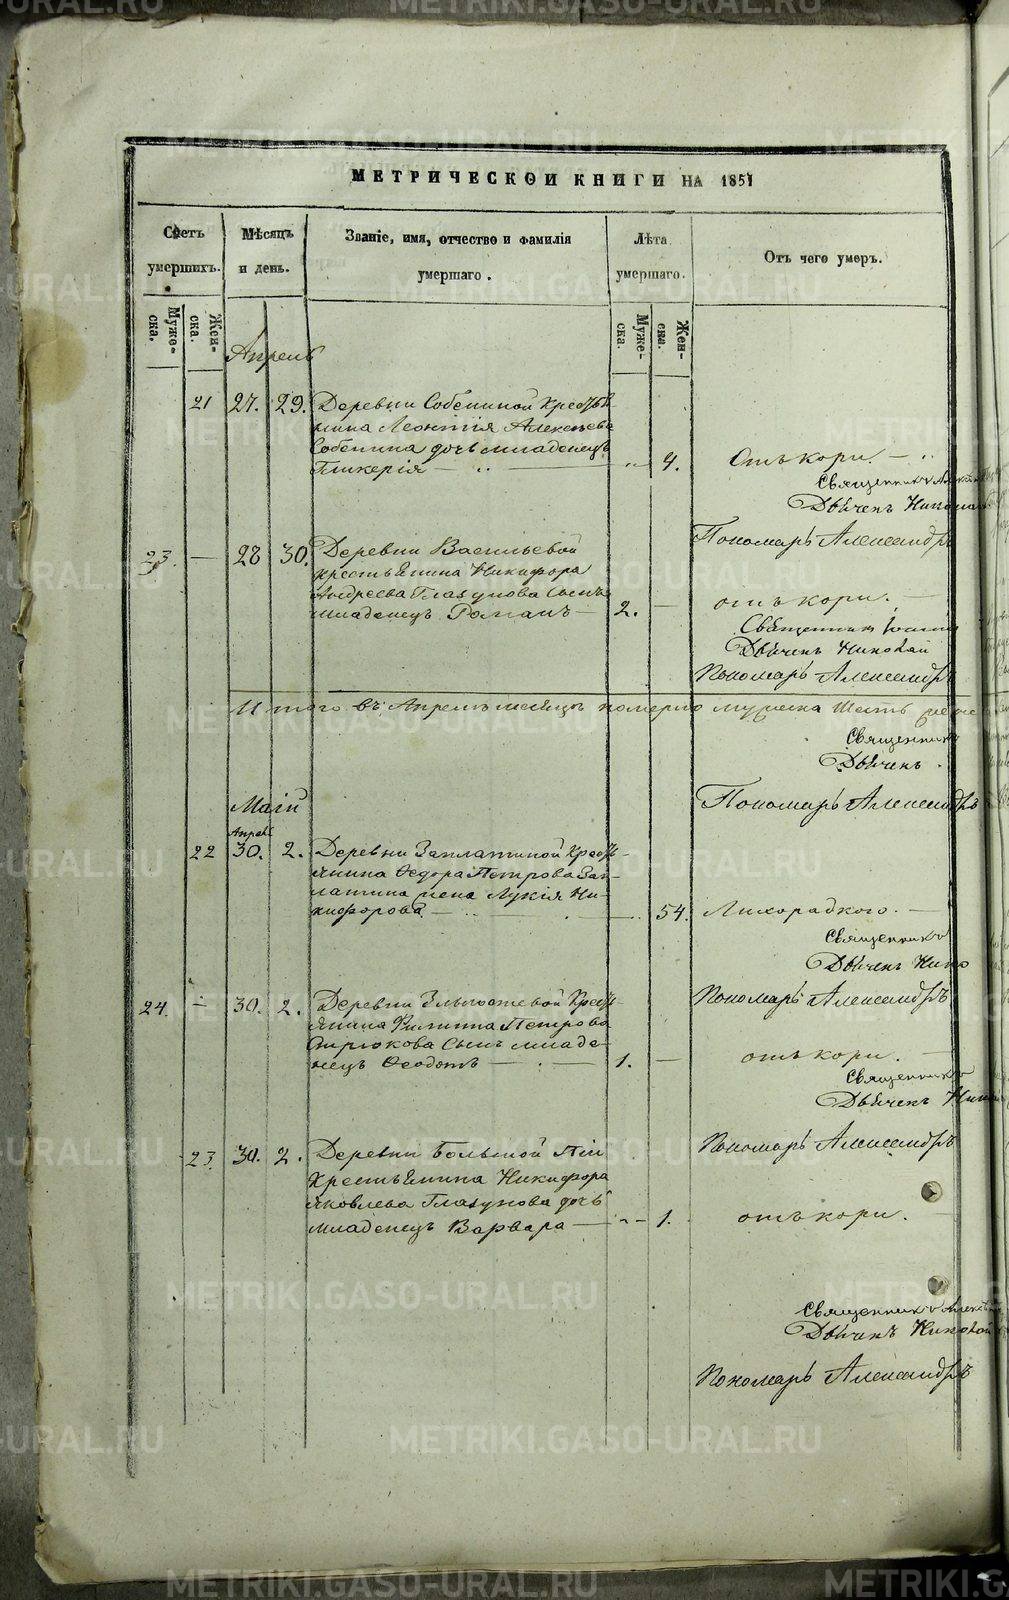 МЕТРИЧЕСКОЙ КНИГИ НА 1851
Счетъ умершихъ.
Мѣсяцъ и день.
Званіе, имя, отчество и фамилія умершаго.
Лѣта умершаго.
Отъ чего умеръ.
Мужеска.
Женска.
Мужеска.
Женска.
Апрель
21 27. 29. Деревни Собениной Кресть
янина Леонтія Алексѣева
Собенина дочь младенецъ
Гликерія — 4. Отъ кори.
Священникъ
Дьячекъ
Пономарь Александръ
23. — 28 30. Деревни Васильевой
крестьянина Никифора
Андреева Глазунова Сынъ
младенецъ Романъ — 2. — отъ кори.
Священникъ
Дьячекъ Николай
Пономарь Александръ
Итого въ Апрелѣ месяцѣ померло мужеска Шесть
Священникъ
Дьячекъ
Пономарь Александръ
Маій
Апрель
22 30. 2. Деревни Заплатиной Кресть-
янина Ѳедора Петрова Зап-
латина жена Лукія Ни-
кифорова — 54. Лихорадкого.
Священникъ
Дьячекъ
Пономарь Александръ
24. — 30. 2. Деревни Кресть-
янина Филиппа Петрова
Бирюкова Сынъ младе-
нецъ Ѳеодотъ — 1. — отъ кори.
Священникъ
Дьячекъ
Пономарь Александръ
23. 30. 2. Деревни Большой
Крестьянина Никифора
Яковлева Глазунова дочь
младенецъ Варвара — 1. отъ кори.
Священникъ
Дьячекъ Николай
Пономарь Александръ
METRIKI.GASO-URAL.RU